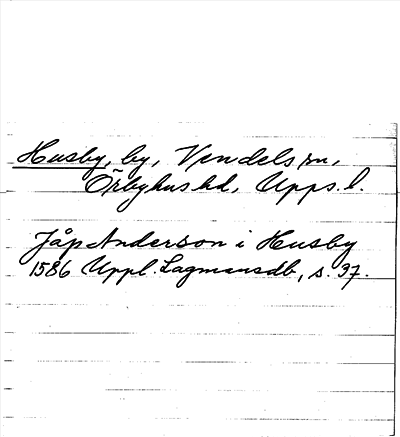 Husby, by, Vendels sn,
Örbyhus hd, Upps. l.
Jåp Anderson i Husby
1586 Uppl. Lagmansdb, s. 97.